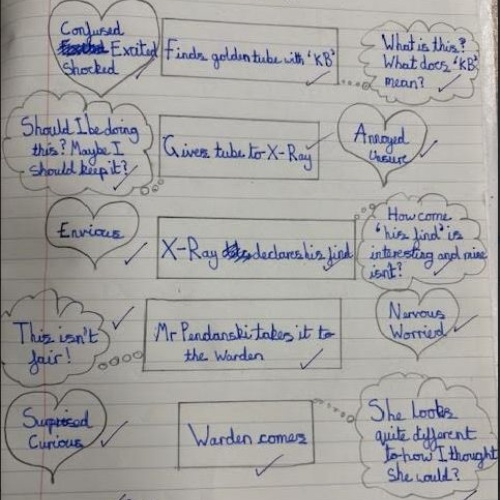 Confused
Excited
Shocked
Finds golden tube with 'KB'
What is this?
What does 'KB'
mean?
Should I be doing
this? Maybe I
should keep it?
Gives tube to X-Ray
Annoyed
Unsure
Envious
X-Ray declares his find
How come
'his find' is
interesting and mine
isn't?
This isn't
fair!
Mr Pendanski takes it to
the Warden
Nervous
Worried
Suprised
Curious
Warden comes
She looks
quite different
to how I thought
she would?